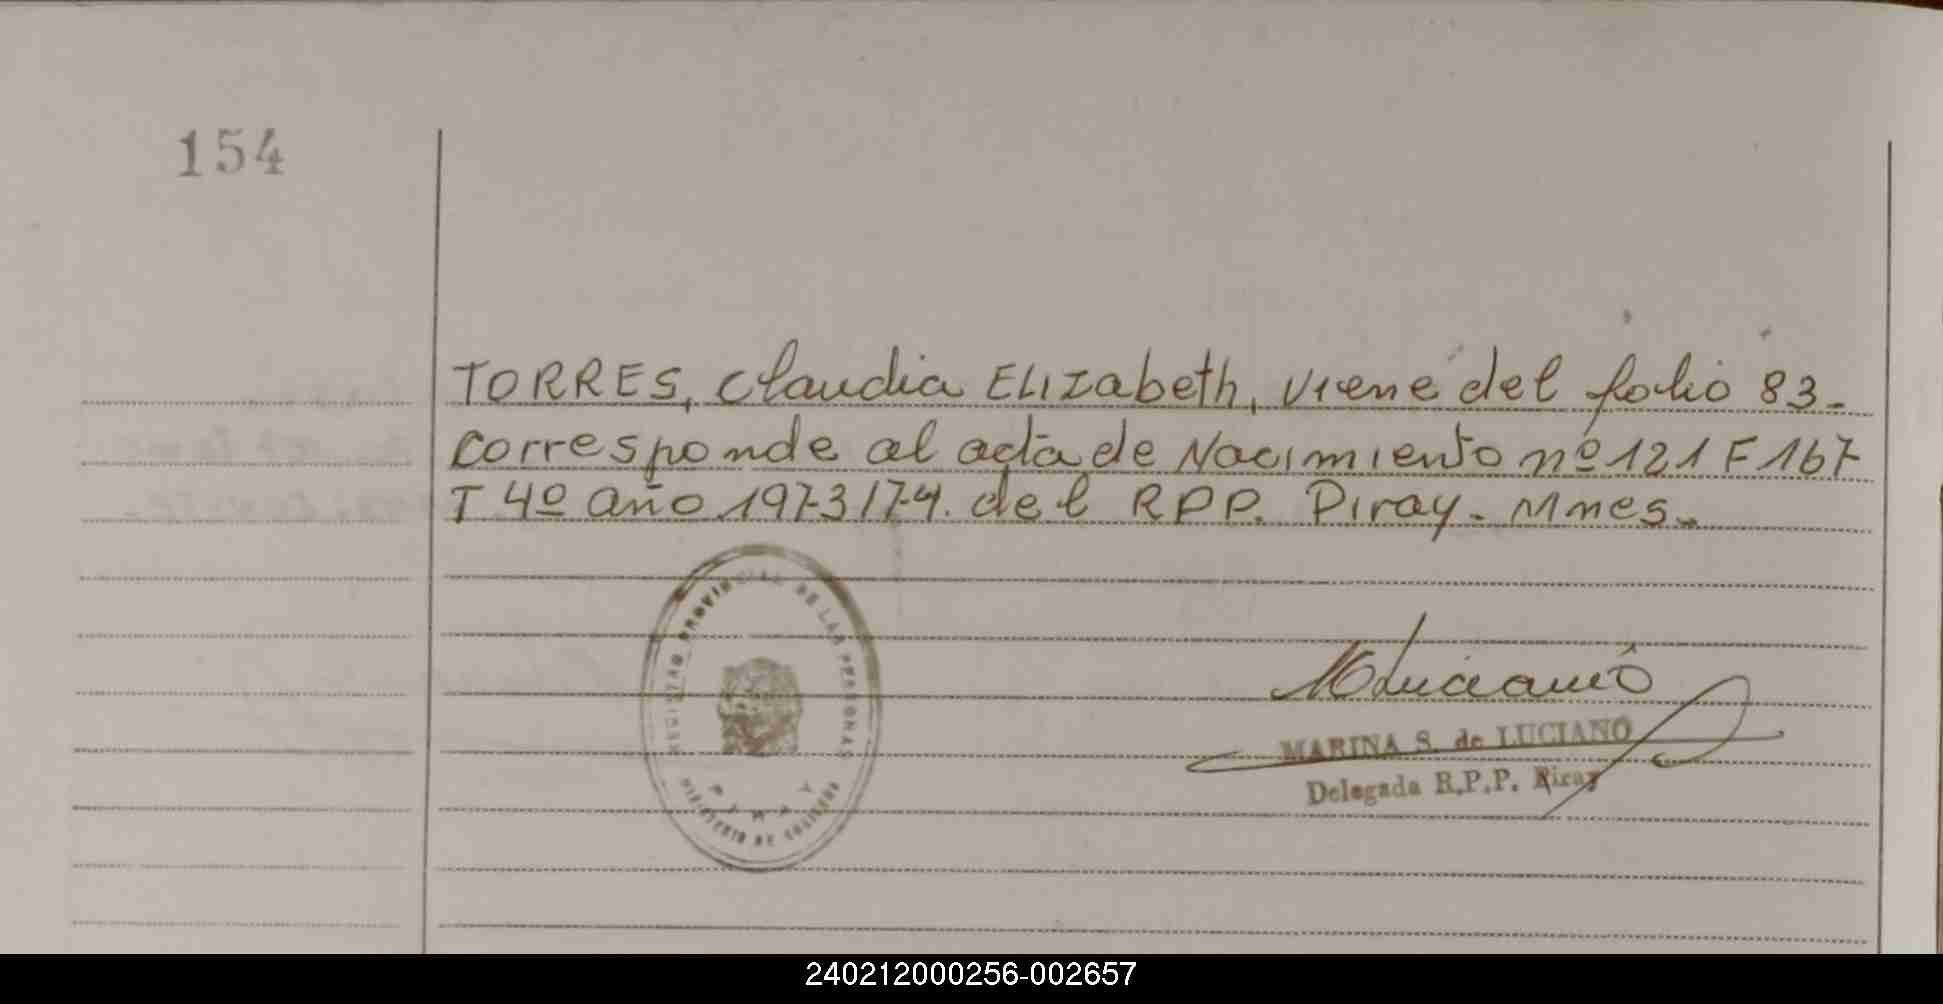 154
TORRES, Claudia ELIzabeth, viene del folio 83-
Corresponde al acta de Nacimiento nº 121 F 167
T 4º año 1973/74. del RPP. Piray- Mnes-
REGISTRO PROVINCIAL DE LAS PERSONAS
PIRAY
MINISTERIO DE GOBIERNO
MLuciano
MARINA S. de LUCIANO
Delegada R.P.P. Piray
240212000256-002657